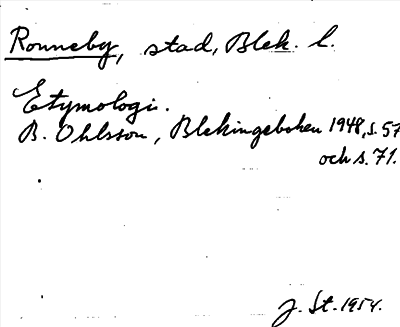 Ronneby, stad, Blek. l.
Etymologi.
B. Ohlsson, Blekingeboken 1948, s. 57
och s. 71.
J. St. 1954.